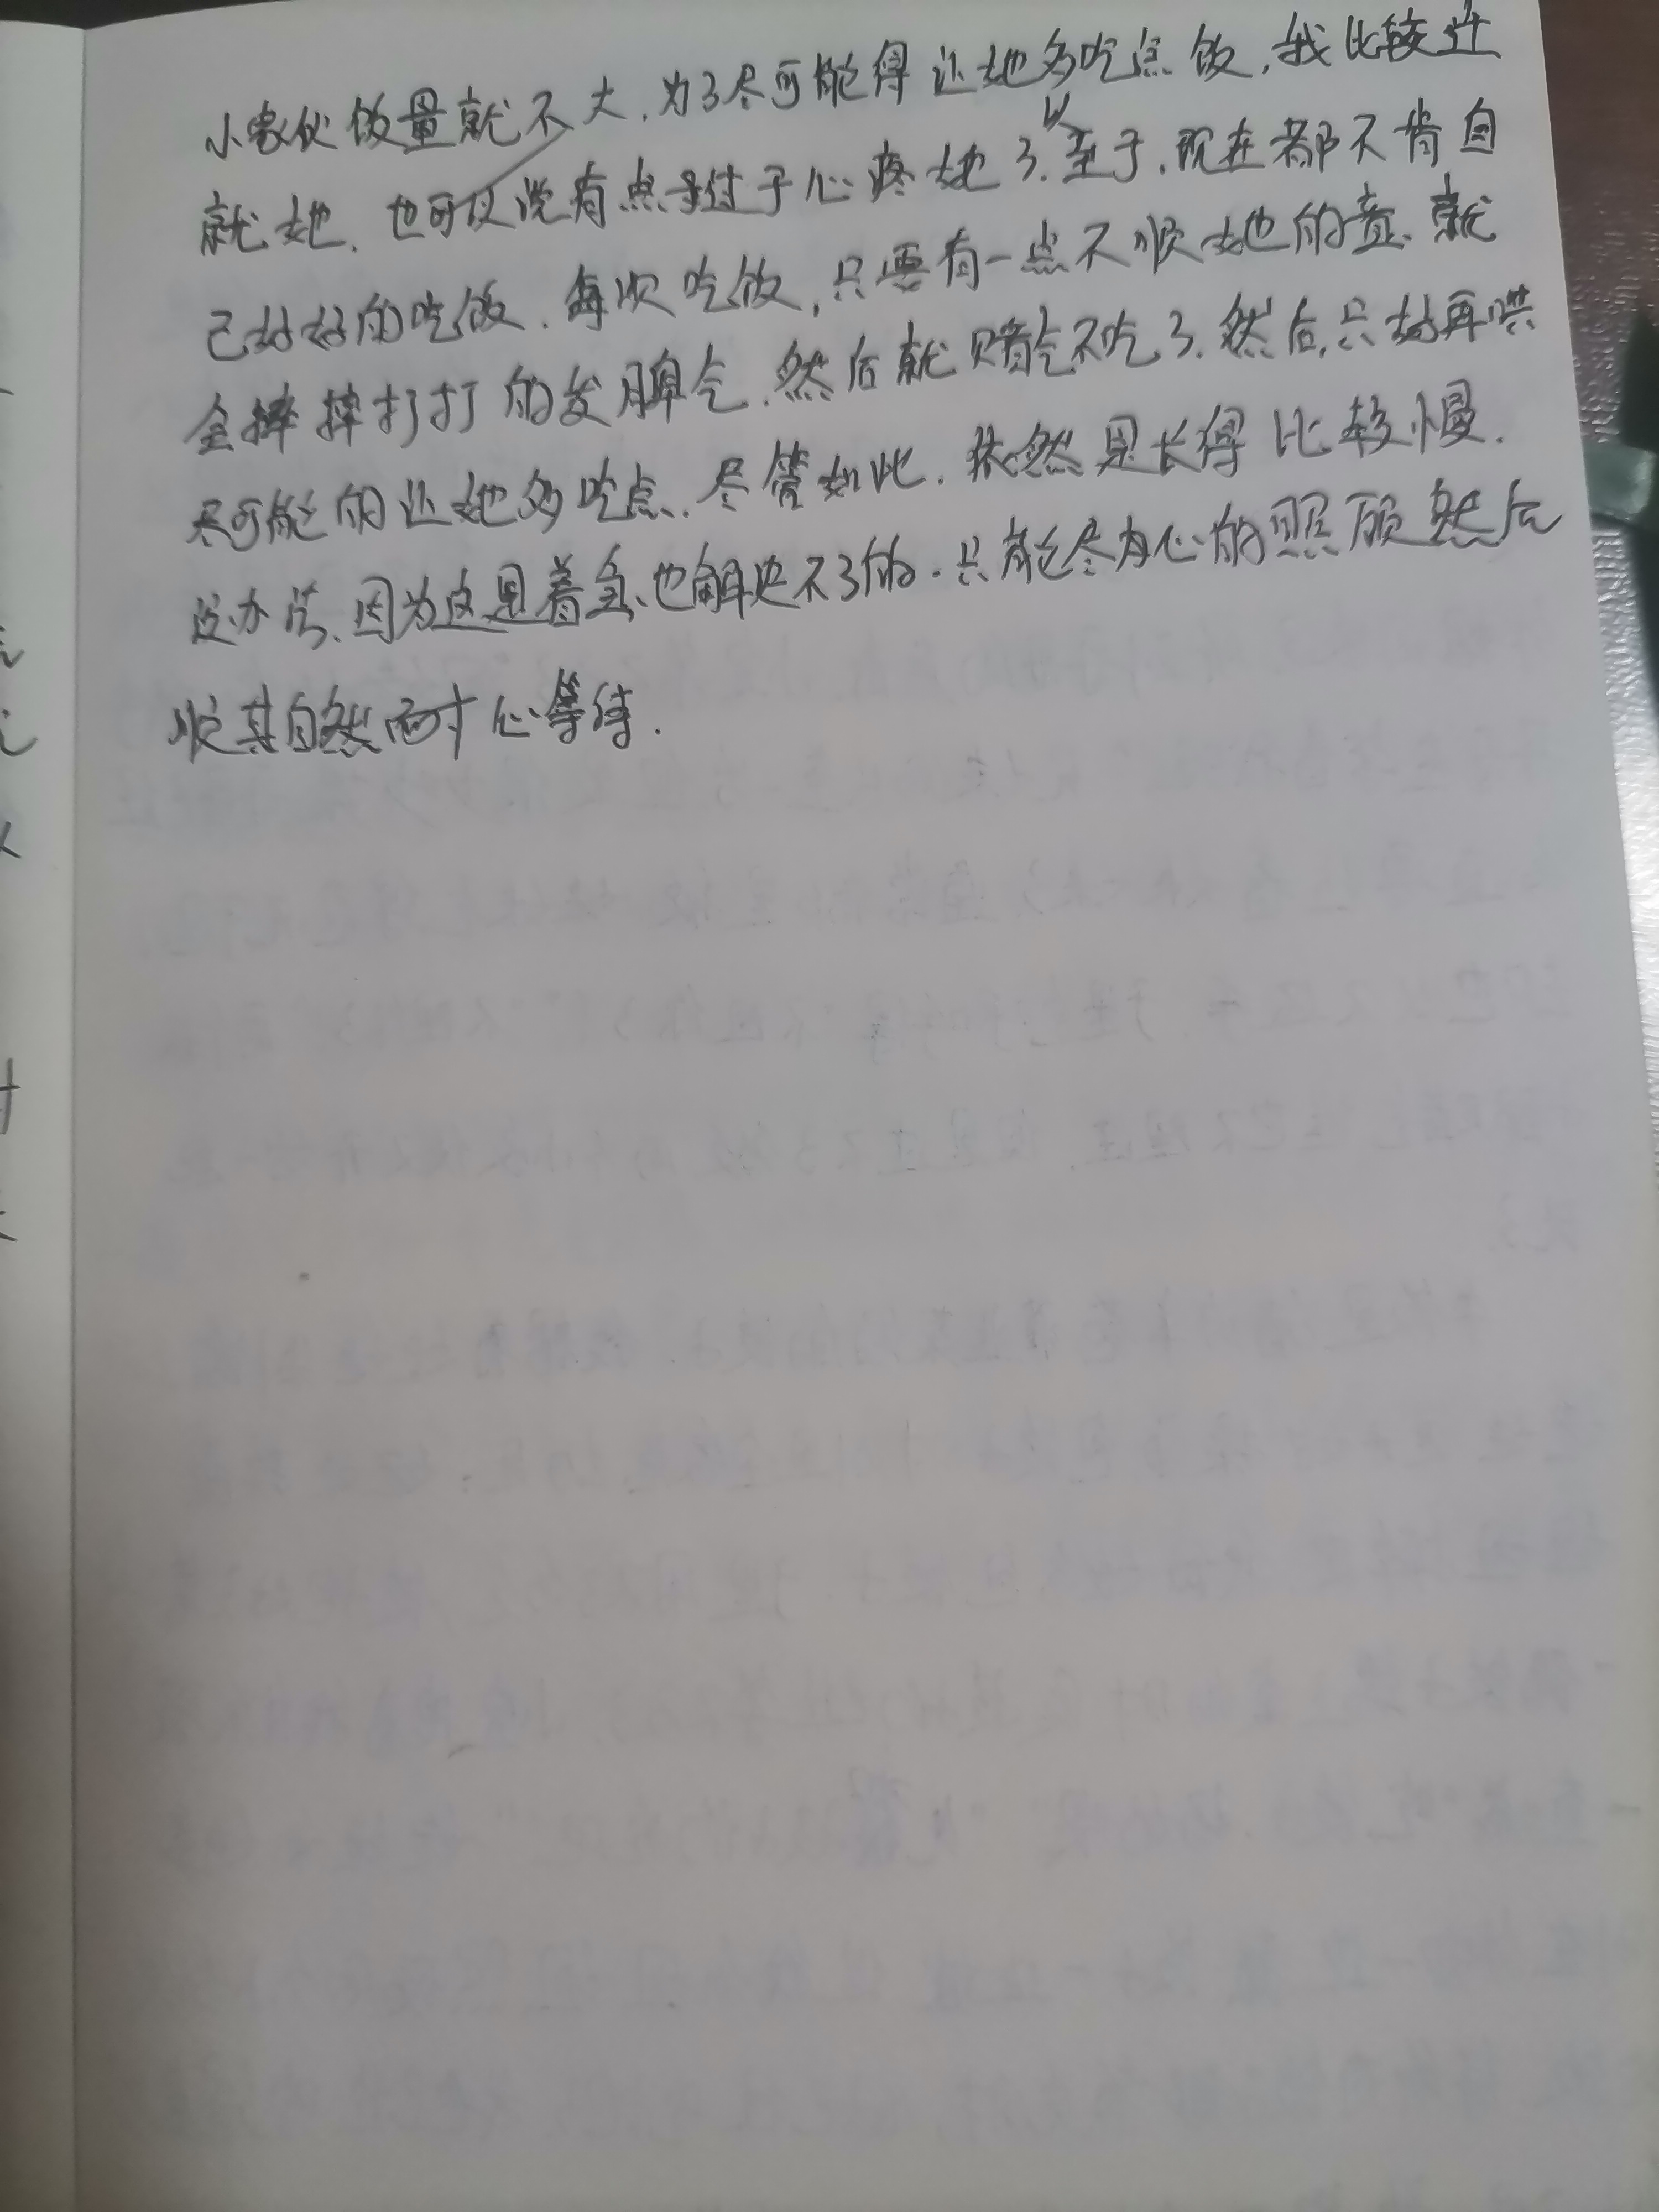 小家伙饭量就不大,为了尽可能得让她多吃点饭,我比较迁
就她,也可以说有点是过于心疼她了.以至于,现在都不肯自
己好好的吃饭.每次吃饭,只要有一点不顺她的意、就
会摔摔打打的发脾气.然后就赌气不吃了.然后,只好再哄
尽可能的让她多吃点.尽管如此.依然是长得比较慢.
没办法、因为这是着急、也解决不了的.只能尽力心的照顾然后
顺其自然耐心等待.